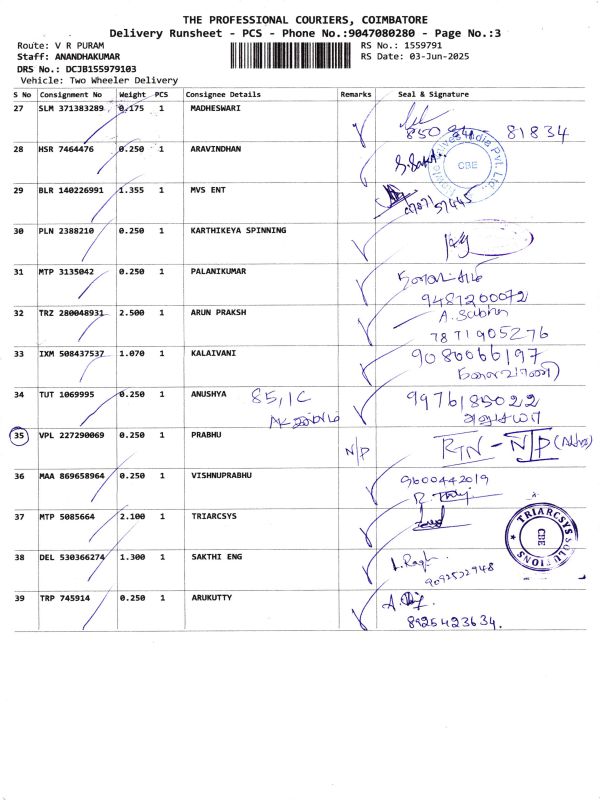 THE PROFESSIONAL COURIERS, COIMBATORE
Delivery Runsheet - PCS - Phone No.:9047080280 - Page No.:3
Route: V R PURAM
RS No.: 1559791
Staff: ANANDHAKUMAR
RS Date: 03-Jun-2025
DRS No.: DCJB155979103
Vehicle: Two Wheeler Delivery
S No Consignment No Weight PCS Consignee Details Remarks Seal & Signature
27 SLM 371383289 0.175 1 MADHESWARI
81834
28 HSR 7464476 0.250 1 ARAVINDHAN
CBE
29 BLR 140226991 1.355 1 MVS ENT
30 PLN 2388210 0.250 1 KARTHIKEYA SPINNING
31 MTP 3135042 0.250 1 PALANIKUMAR
9487200072
32 TRZ 280048931 2.500 1 ARUN PRAKSH
A. Subha
33 IXM 508437537 1.070 1 KALAIVANI
9080066197
34 TUT 1069995 0.250 1 ANUSHYA 85,1C
9976189022
அனுசுயா
35 VPL 227290069 0.250 1 PRABHU N/P RTN - N/P
36 MAA 869658964 0.250 1 VISHNUPRABHU 9600442019
37 MTP 5085664 2.100 1 TRIARCSYS
TRIARCSYS SOLUTIONS
CBE
38 DEL 530366274 1.300 1 SAKTHI ENG
9092522948
39 TRP 745914 0.250 1 ARUKUTTY
8925423634.